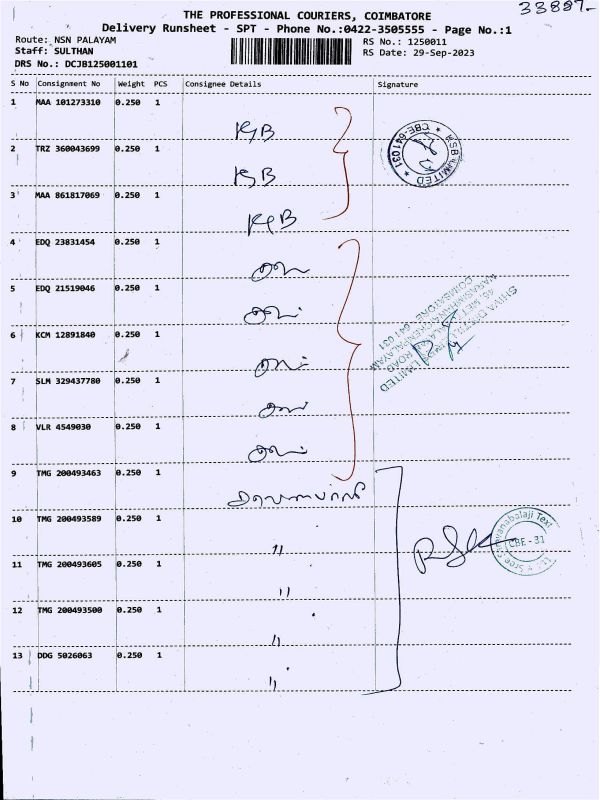 33887-
THE PROFESSIONAL COURIERS, COIMBATORE
Delivery Runsheet - SPT - Phone No.:0422-3505555 - Page No.:1
Route: NSN PALAYAM
Staff: SULTHAN
DRS No.: DCJB125001101
RS No.: 1250011
RS Date: 29-Sep-2023
S No Consignment No Weight PCS Consignee Details Signature
1 MAA 101273310 0.250 1
KSB LIMITED * CBE-641 031 *
2 TRZ 360043699 0.250 1
3 MAA 861817069 0.250 1
4 EDQ 23831454 0.250 1
5 EDQ 21519046 0.250 1
6 KCM 12891840 0.250 1
LIMITED
ROAD
COIMBATORE - 641 031
7 SLM 329437780 0.250 1
8 VLR 4549030 0.250 1
9 TMG 200493463 0.250 1
10 TMG 200493589 0.250 1
"
CBE - 31
11 TMG 200493605 0.250 1
"
12 TMG 200493500 0.250 1
"
13 DDG 5026063 0.250 1
"